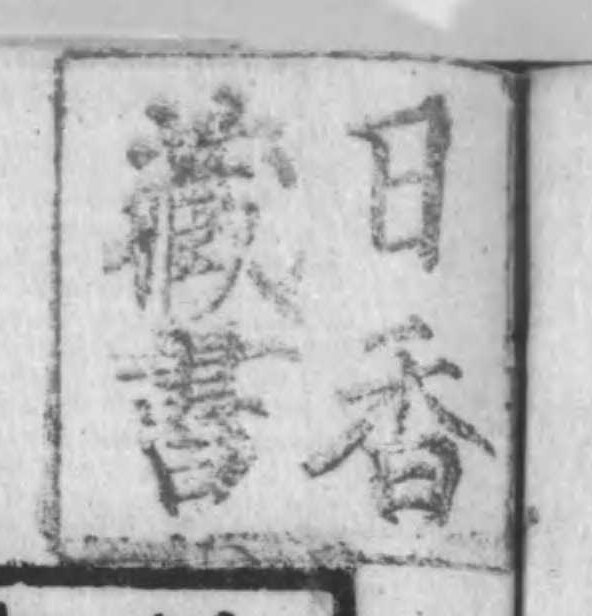 日香
藏書